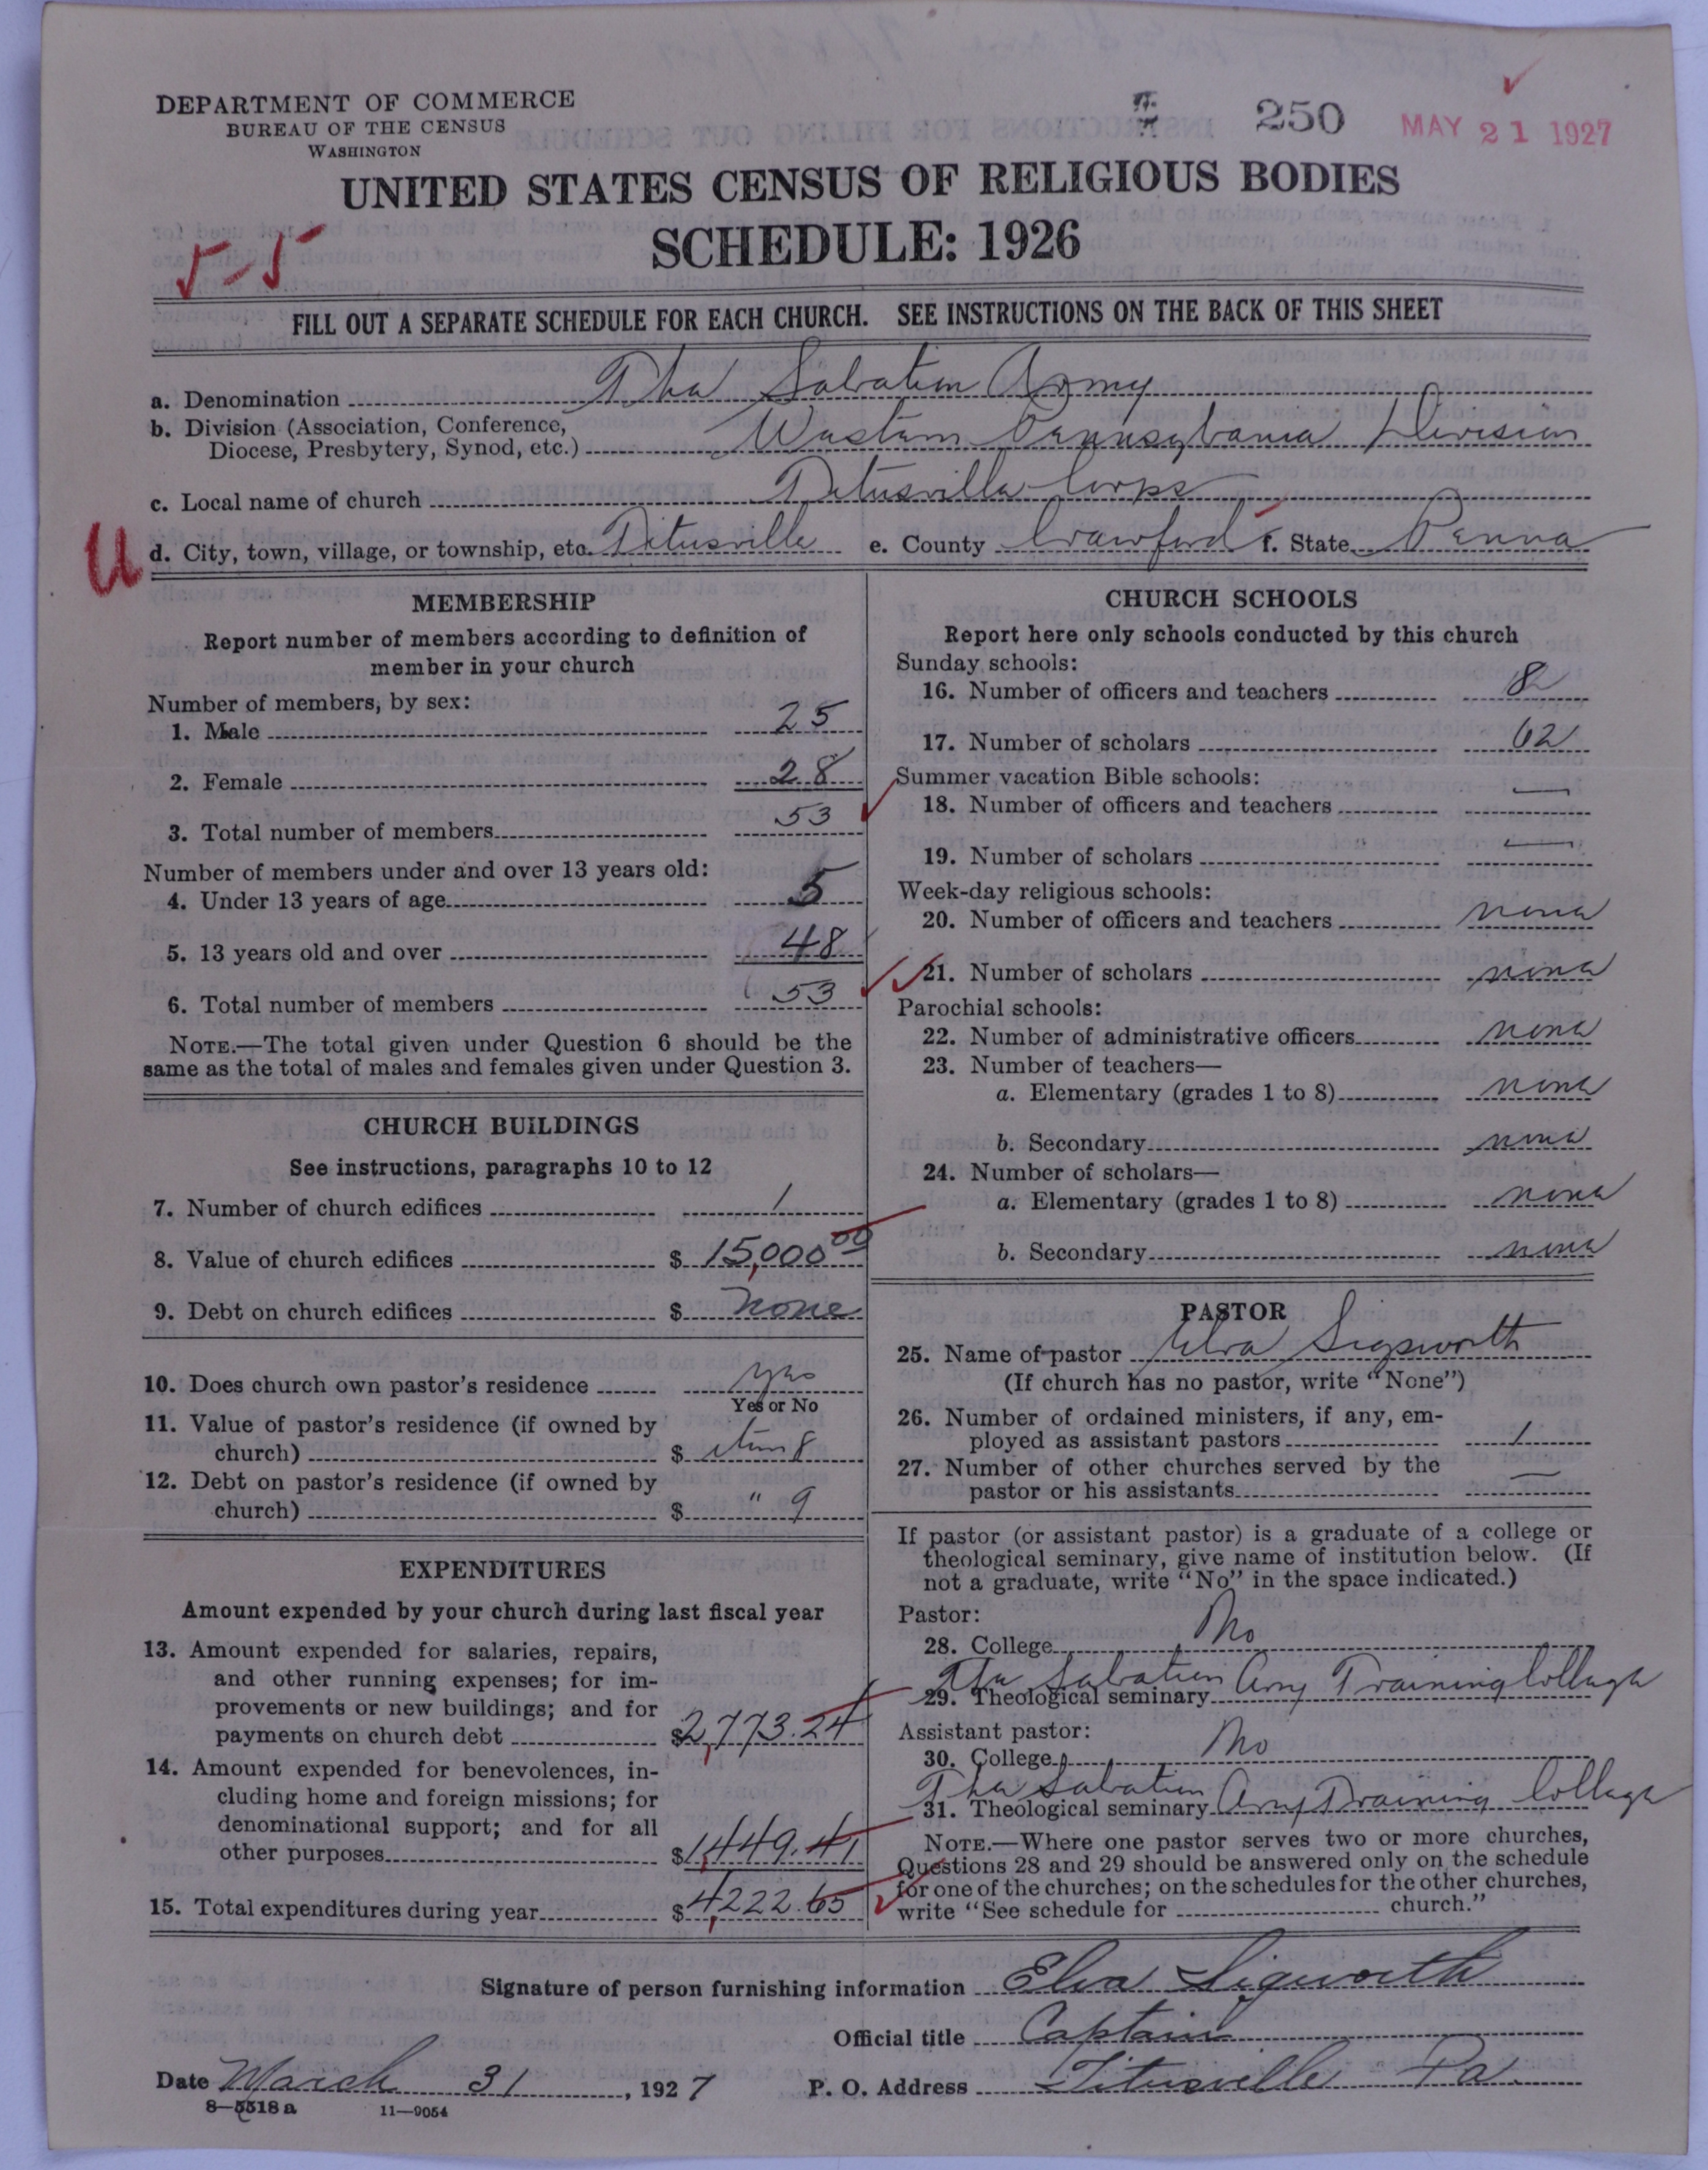 DEPARTMENT OF COMMERCE
BUREAU OF THE CENSUS
WASHINGTON
250
MAY 21 1927
UNITED STATES CENSUS OF RELIGIOUS BODIES
SCHEDULE: 1926
5-5
FILL OUT A SEPARATE SCHEDULE FOR EACH CHURCH. SEE INSTRUCTIONS ON THE BACK OF THIS SHEET
a. Denomination The Salvation Army
b. Division (Association, Conference,
Diocese, Presbytery, Synod, etc.) Western Pennsylvania Division
c. Local name of church Titusville Corps
U
d. City, town, village, or township, etc. Titusville e. County Crawford f. State Penna
MEMBERSHIP
Report number of members according to definition of
member in your church
Number of members, by sex:
1. Male 25
2. Female 28
3. Total number of members 53
Number of members under and over 13 years old:
4. Under 13 years of age 5
5. 13 years old and over 48
6. Total number of members 53
NOTE.—The total given under Question 6 should be the
same as the total of males and females given under Question 3.
CHURCH BUILDINGS
See instructions, paragraphs 10 to 12
7. Number of church edifices 1
8. Value of church edifices $ 15,000 00
9. Debt on church edifices $ none
10. Does church own pastor's residence yes
Yes or No
11. Value of pastor's residence (if owned by
church) $ item 8
12. Debt on pastor's residence (if owned by
church) $ " 9
EXPENDITURES
Amount expended by your church during last fiscal year
13. Amount expended for salaries, repairs,
and other running expenses; for im-
provements or new buildings; and for
payments on church debt $2,773.24
14. Amount expended for benevolences, in-
cluding home and foreign missions; for
denominational support; and for all
other purposes $1,449.41
15. Total expenditures during year $4,222.65
CHURCH SCHOOLS
Report here only schools conducted by this church
Sunday schools:
16. Number of officers and teachers 8
17. Number of scholars 62
Summer vacation Bible schools:
18. Number of officers and teachers —
19. Number of scholars —
Week-day religious schools:
20. Number of officers and teachers none
21. Number of scholars none
Parochial schools:
22. Number of administrative officers none
23. Number of teachers—
a. Elementary (grades 1 to 8) none
b. Secondary none
24. Number of scholars—
a. Elementary (grades 1 to 8) none
b. Secondary none
PASTOR
25. Name of pastor Elva Sigsworth
(If church has no pastor, write "None")
26. Number of ordained ministers, if any, em-
ployed as assistant pastors 1
27. Number of other churches served by the
pastor or his assistants —
If pastor (or assistant pastor) is a graduate of a college or
theological seminary, give name of institution below. (If
not a graduate, write "No" in the space indicated.)
Pastor:
28. College No
29. Theological seminary The Salvation Army Training College
Assistant pastor:
30. College No
31. Theological seminary The Salvation Army Training College
NOTE.—Where one pastor serves two or more churches,
Questions 28 and 29 should be answered only on the schedule
for one of the churches; on the schedules for the other churches,
write "See schedule for church."
Signature of person furnishing information Elva Sigworth
Official title Captain
Date March 31, 1927 P. O. Address Titusville Pa.
8—5518 a 11—9054